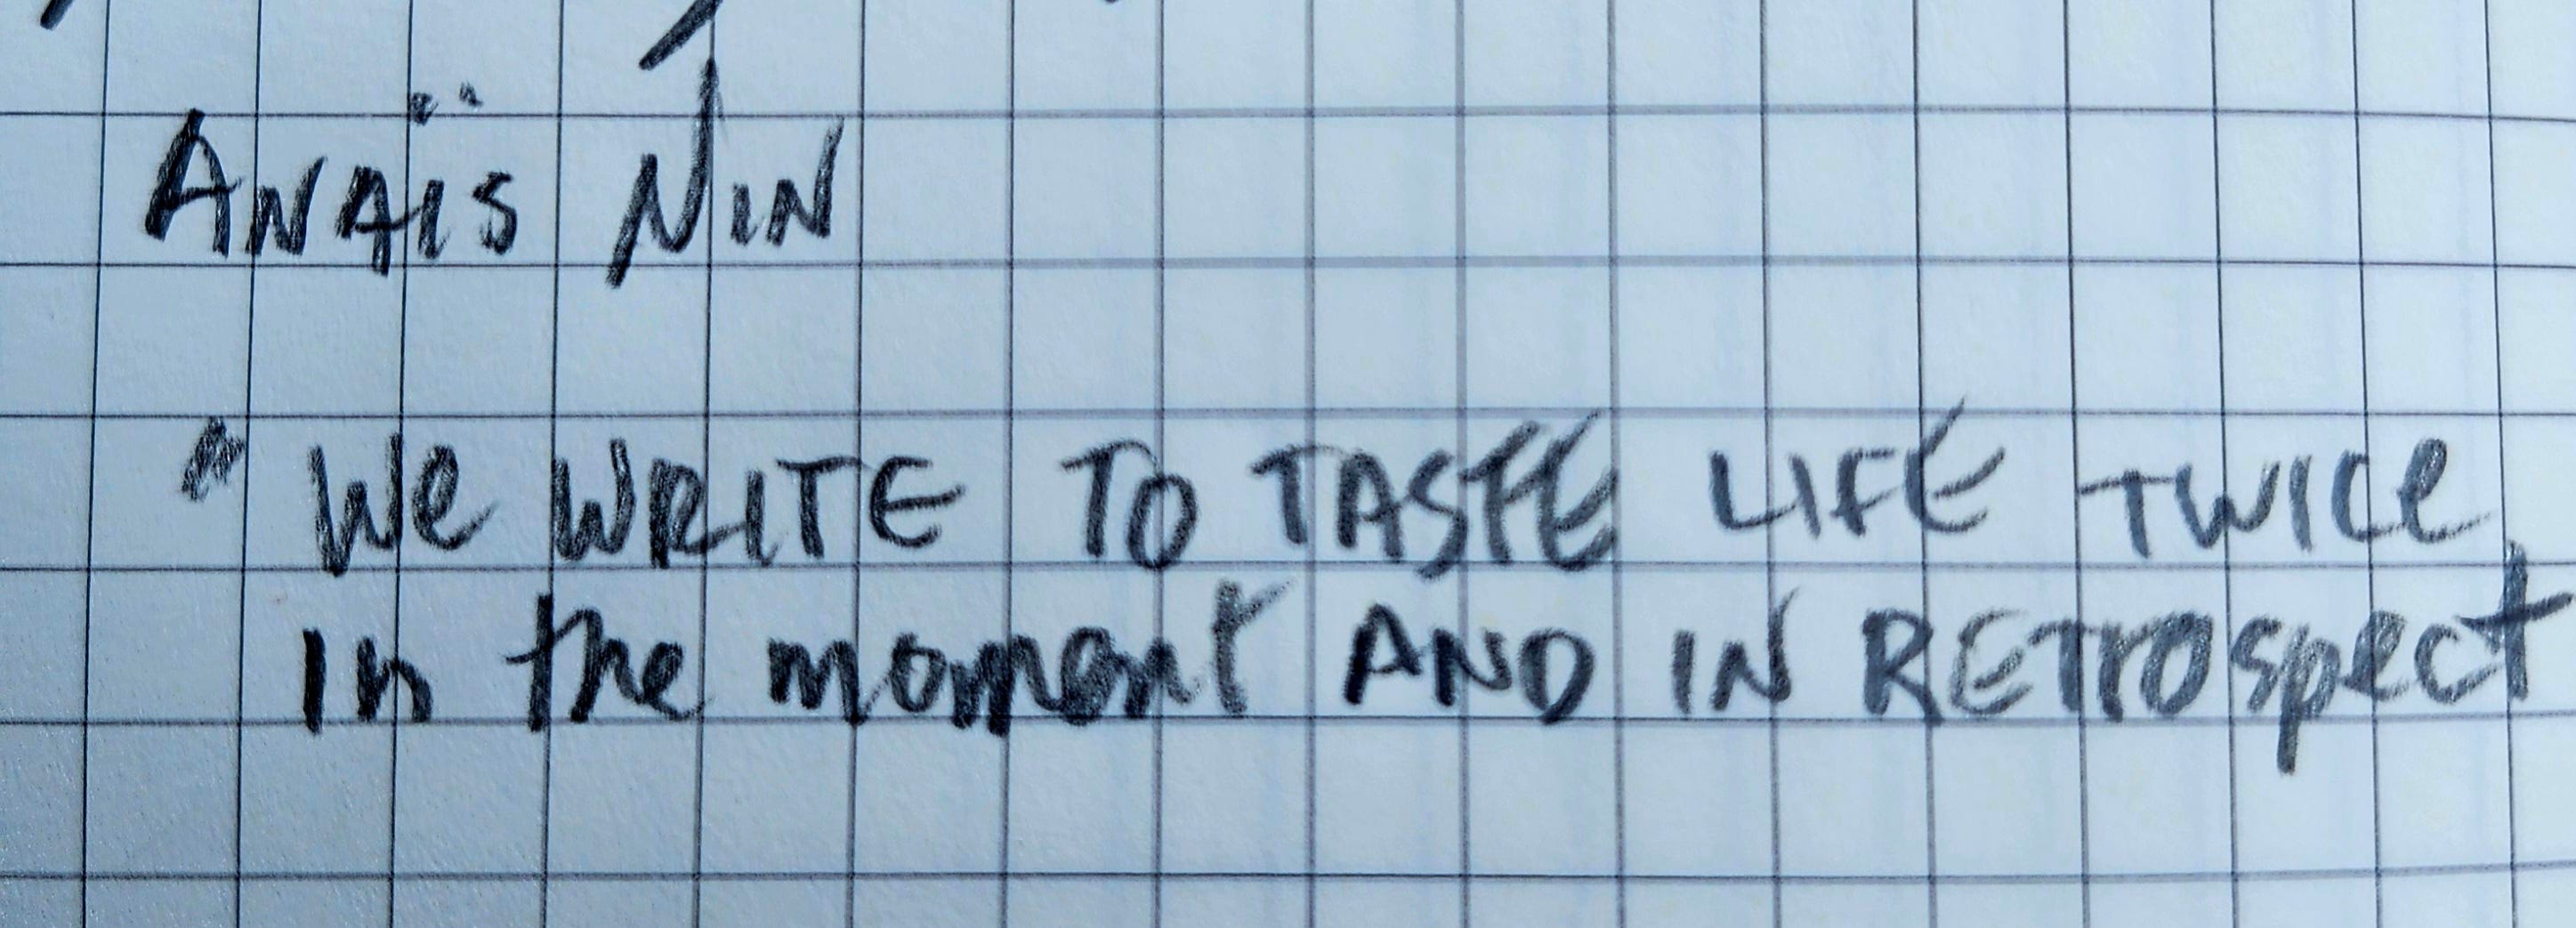 Anaïs Nin
"We WRITE TO TASTE LIFE TWICE,
in the moment AND IN RETROspect